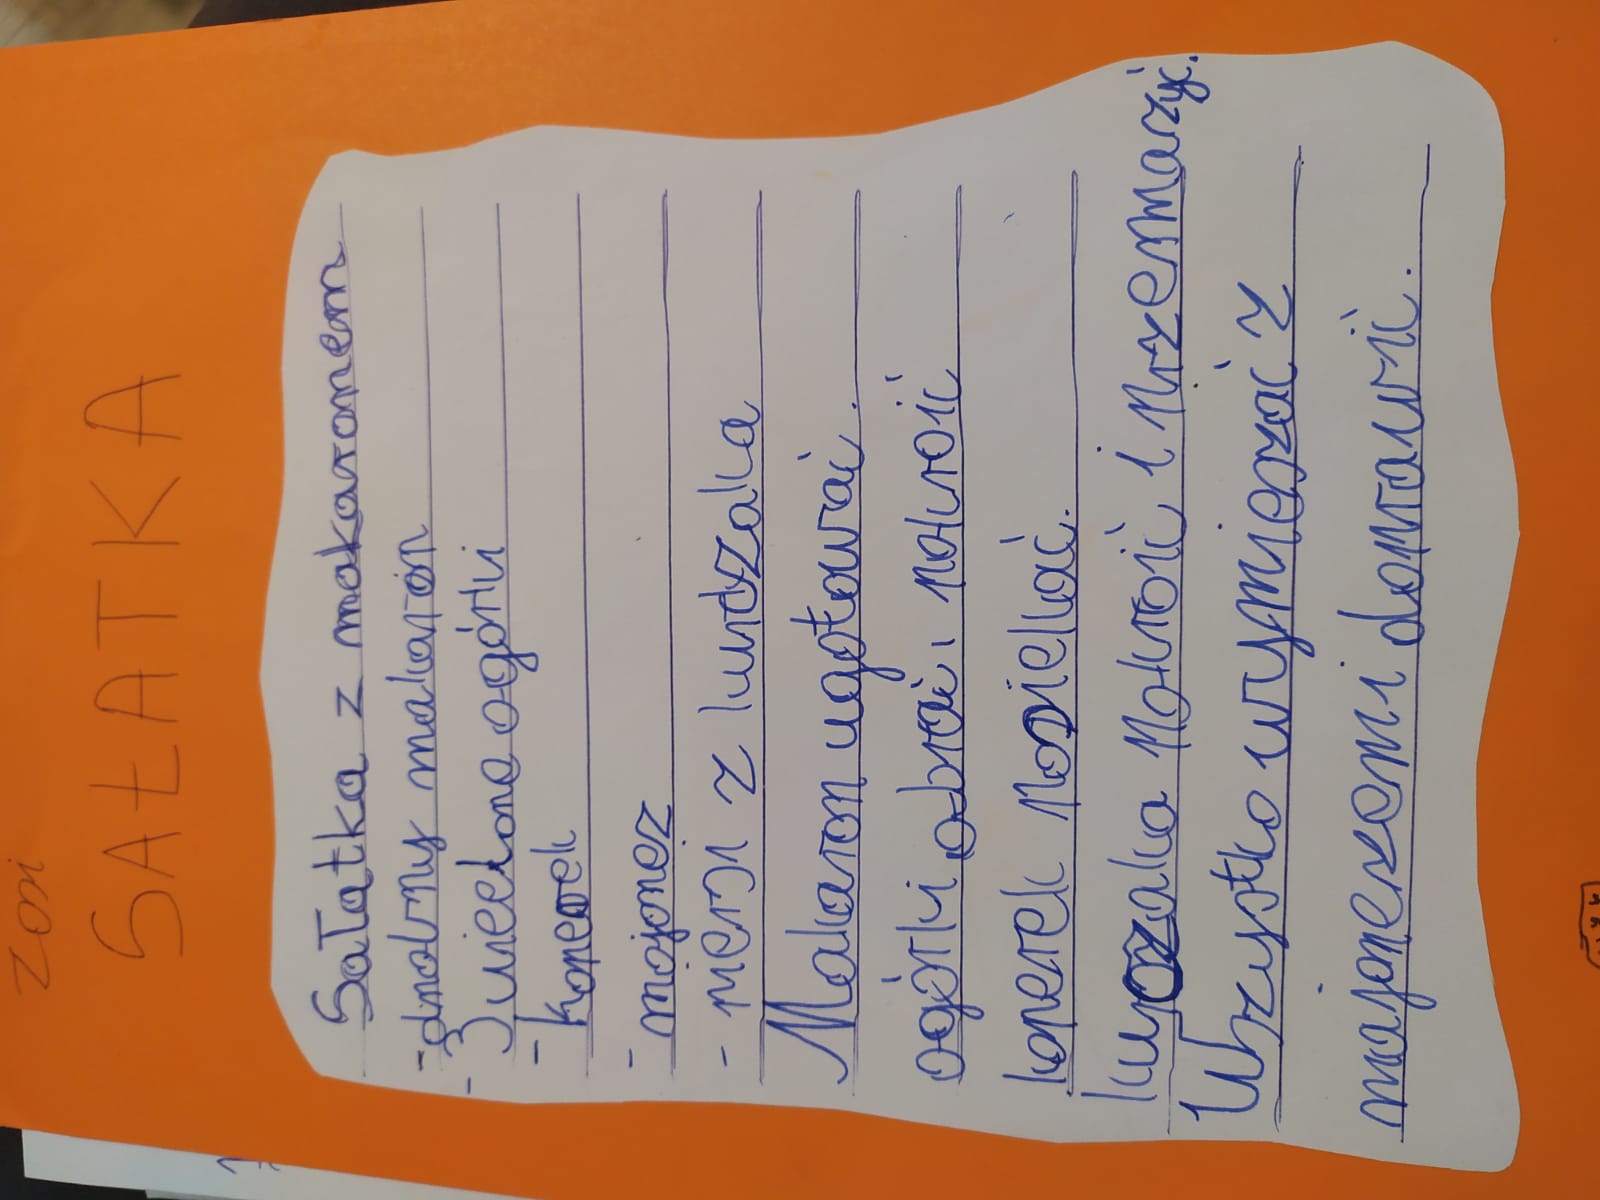 Zosi
SAŁATKA
Sałatka z makaronem
- drobny makaron
- 3 wiejskie ogórki
- koperek
- majonez
- pierś z kurczaka
Makaron ugotować.
ogórki obrać i pokroić
koperek posiekać.
kurczaka pokroić i przesmażyć.
Wszystko wymieszać z
majonezem i doprawić.